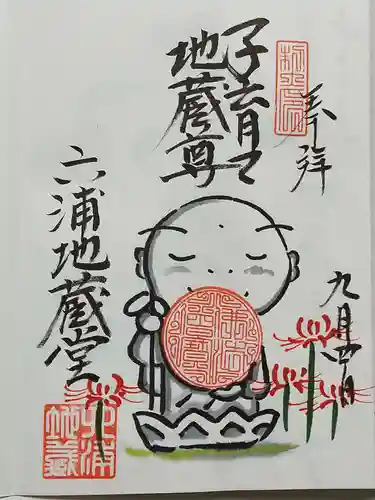 奉拝
子育て
地蔵尊
九月四日
六浦地蔵堂
六浦
地蔵